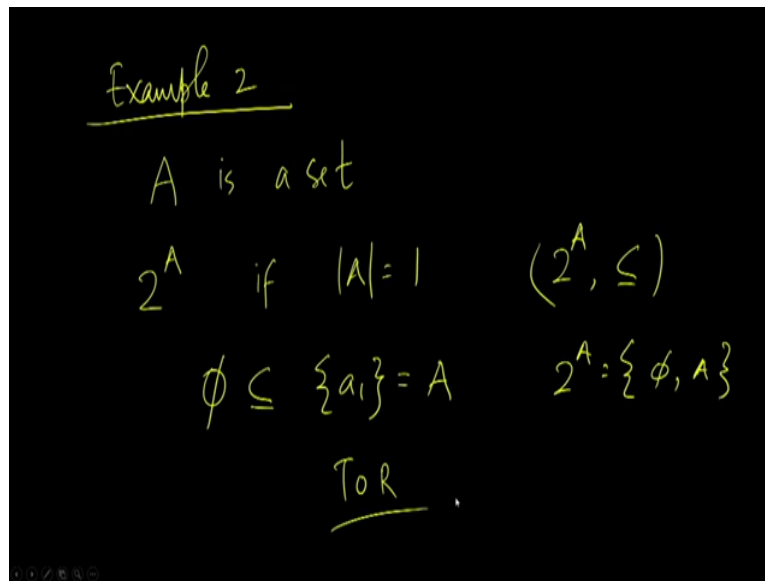 Example 2
A is a set
2^A if |A| = 1 (2^A, ⊆)
ϕ ⊆ {a₁} = A 2^A = {ϕ, A}
TOR